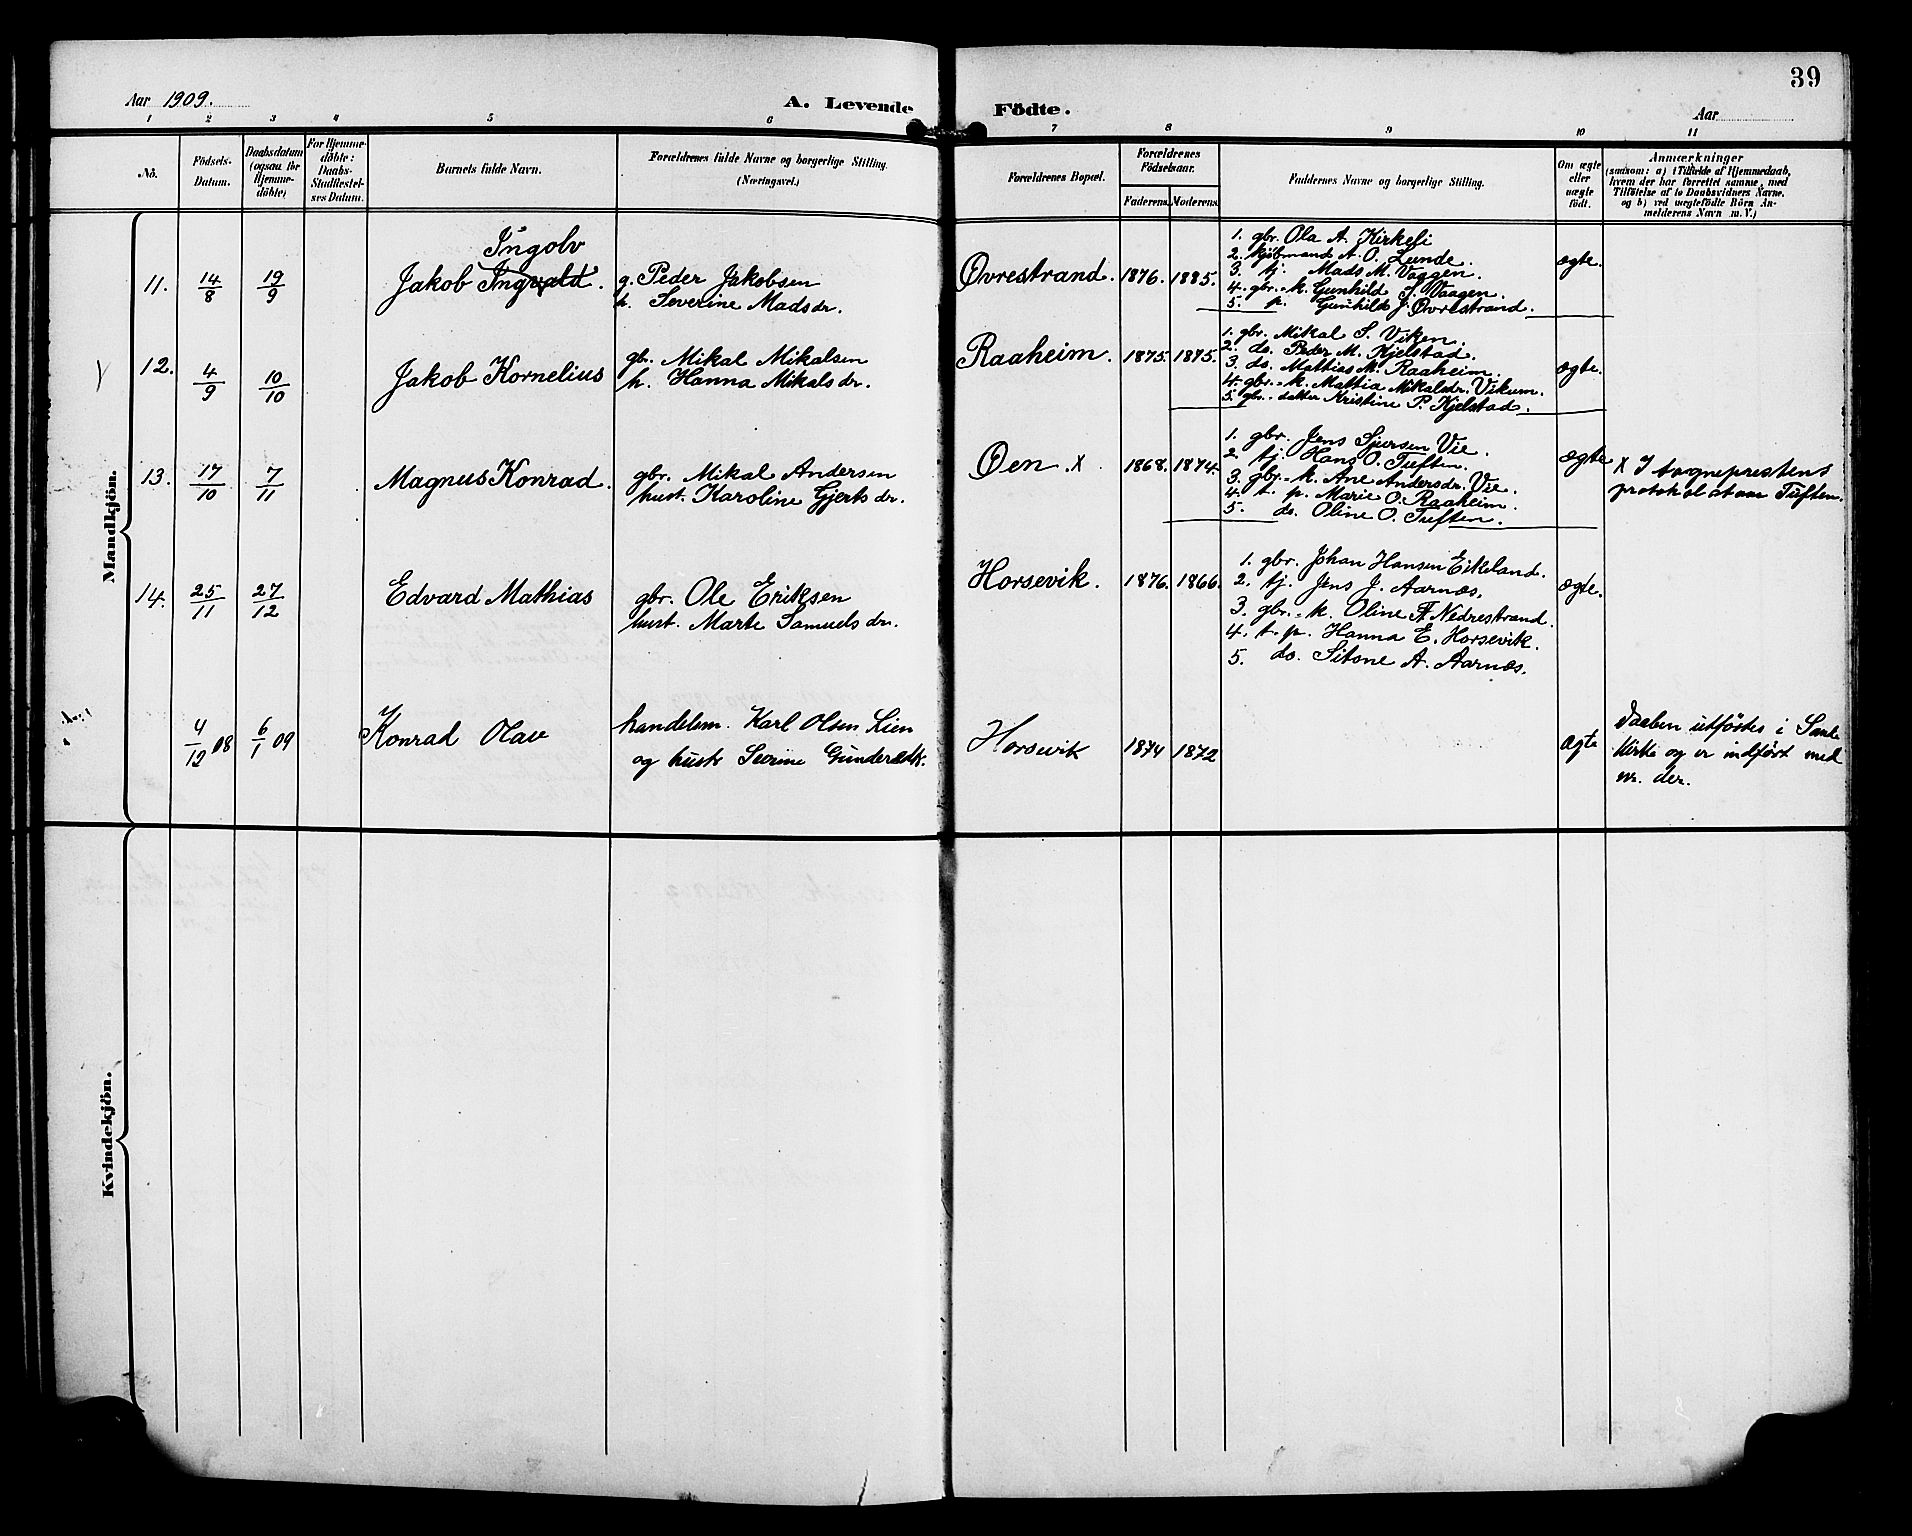 Aar 1909.
A. Levende Födte.
Aar
39
1 2 3 4 5 6 7 8 9 10 11
No.
Födsels-
Datum.
Daabsdatum
(ogsaa for
Hjemme-
döbte)
For Hjemme-
döbte:
Daabs-
Stadfæstel-
ses Datum.
Barnets fulde Navn.
Forældrenes fulde Navne og borgerlige Stilling.
(Næringsvei.)
Forældrenes Bopæl.
Forældrenes
Födselsaar.
Faderens. Moderens.
Faddernes Navne og borgerlige Stilling.
Om ægte
eller
uægte
födt.
Anmærkninger
(saasom: a) i Tilfælde af Hjemmedaab,
hvem der har forrettet samme, med
Tilföielse af to Daabsvidners Navne.
og b) ved uægtefödte Börn An-
melderens Navn m. V.)
Mandkjön.
11. 14/8 19/9
Ingolv
Jakob Ingvald.
g. Peder Jakobsen
h. Severine Madsdr.
Øvrestrand. 1876. 1885.
1. gbr. Ola A. Kirkeli
2. kjøbmand A. O. Lunde.
3. tj. Mads M. Vaagen.
4. gbr.-k. Gunhild J. Vaagen.
5. p. Gunhild J. Øvrestrand.
ægte.
12. 4/9 10/10
Jakob Kornelius
gbr. Mikal Mikalsen
h. Hanna Mikalsdr.
Raaheim. 1875. 1875.
1. gbr. Mikal S. Viken.
2. do. Peder M. Kjelstad.
3. do. Mathias M. Raaheim.
4. gbr.-k. Mattia Mikalsdr. Vikum.
5. gbr.-datter Kristine P. Kjelstad.
ægte.
13. 17/10 7/11
Magnus Konrad.
gbr. Mikal Andersen
hust. Karoline Gjertsdr.
Øen. x 1868. 1874.
1. gbr. Jens Sjursen Vie.
2. tj. Hans O. Tuften.
3. gbr.-k. Ane Andersdr. Vie.
4. t. p. Marie O. Raaheim.
5. do. Oline O. Tuften.
ægte
x I sogneprestens
protokol staar Tuften.
14. 25/11 27/12
Edvard Mathias
gbr. Ole Eriksen
hust. Marte Samuelsdr.
Horsevik. 1876. 1866.
1. gbr. Johan Hansen Eikeland.
2. tj. Jens J. Aarnæs.
3. gbr.-k. Oline A Nedrestrand.
4. t. p. Hanna E. Horsevik.
5. do. Sitsne A. Aarnæs.
ægte.
4/12 08 6/1 09
Konrad Olav
handelsm. Karl Olsen Lien
og hustr Serine Gunderædk.
Horsevik 1874 1872
ægte
Daaben utførtes i Sande
Kirke og er indført med
nr. der.
Kvindekjön.